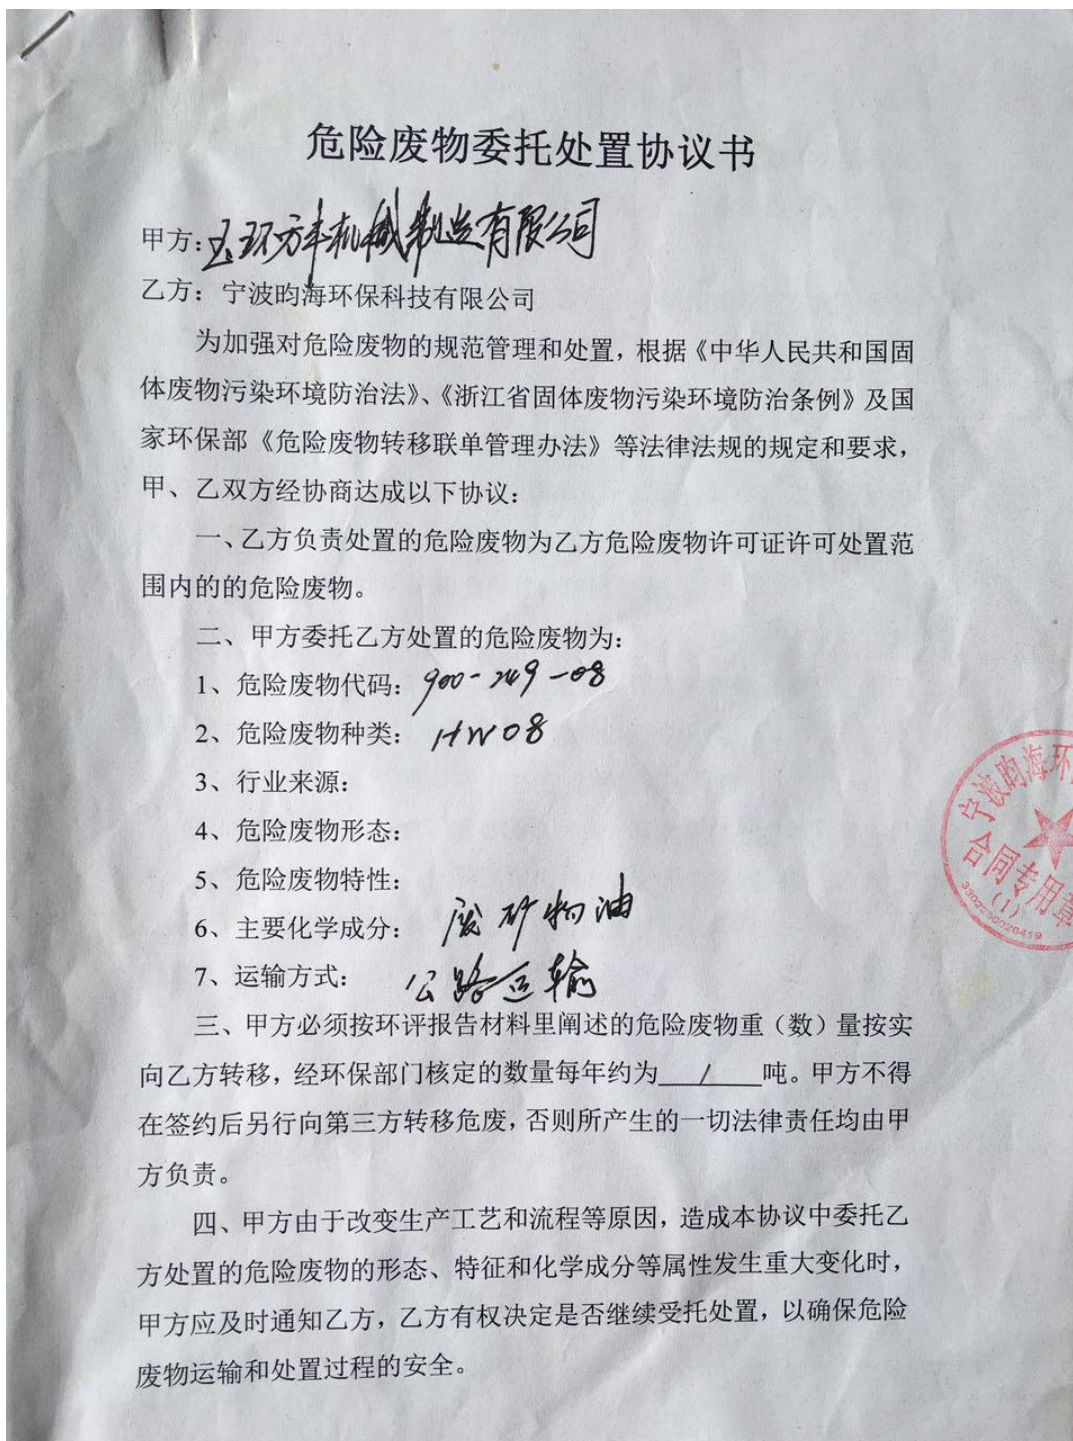 危险废物委托处置协议书
甲方:玉环方丰机械制造有限公司
乙方：宁波昀海环保科技有限公司
为加强对危险废物的规范管理和处置，根据《中华人民共和国固
体废物污染环境防治法》、《浙江省固体废物污染环境防治条例》及国
家环保部《危险废物转移联单管理办法》等法律法规的规定和要求，
甲、乙双方经协商达成以下协议：
一、乙方负责处置的危险废物为乙方危险废物许可证许可处置范
围内的的危险废物。
二、甲方委托乙方处置的危险废物为：
1、危险废物代码：900-249-08
2、危险废物种类：HW08
3、行业来源：
4、危险废物形态：
5、危险废物特性：
6、主要化学成分：废矿物油
7、运输方式：公路运输
三、甲方必须按环评报告材料里阐述的危险废物重（数）量按实
向乙方转移，经环保部门核定的数量每年约为 / 吨。甲方不得
在签约后另行向第三方转移危废，否则所产生的一切法律责任均由甲
方负责。
四、甲方由于改变生产工艺和流程等原因，造成本协议中委托乙
方处置的危险废物的形态、特征和化学成分等属性发生重大变化时，
甲方应及时通知乙方，乙方有权决定是否继续受托处置，以确保危险
废物运输和处置过程的安全。
宁波昀海环
合同专用章
(1)